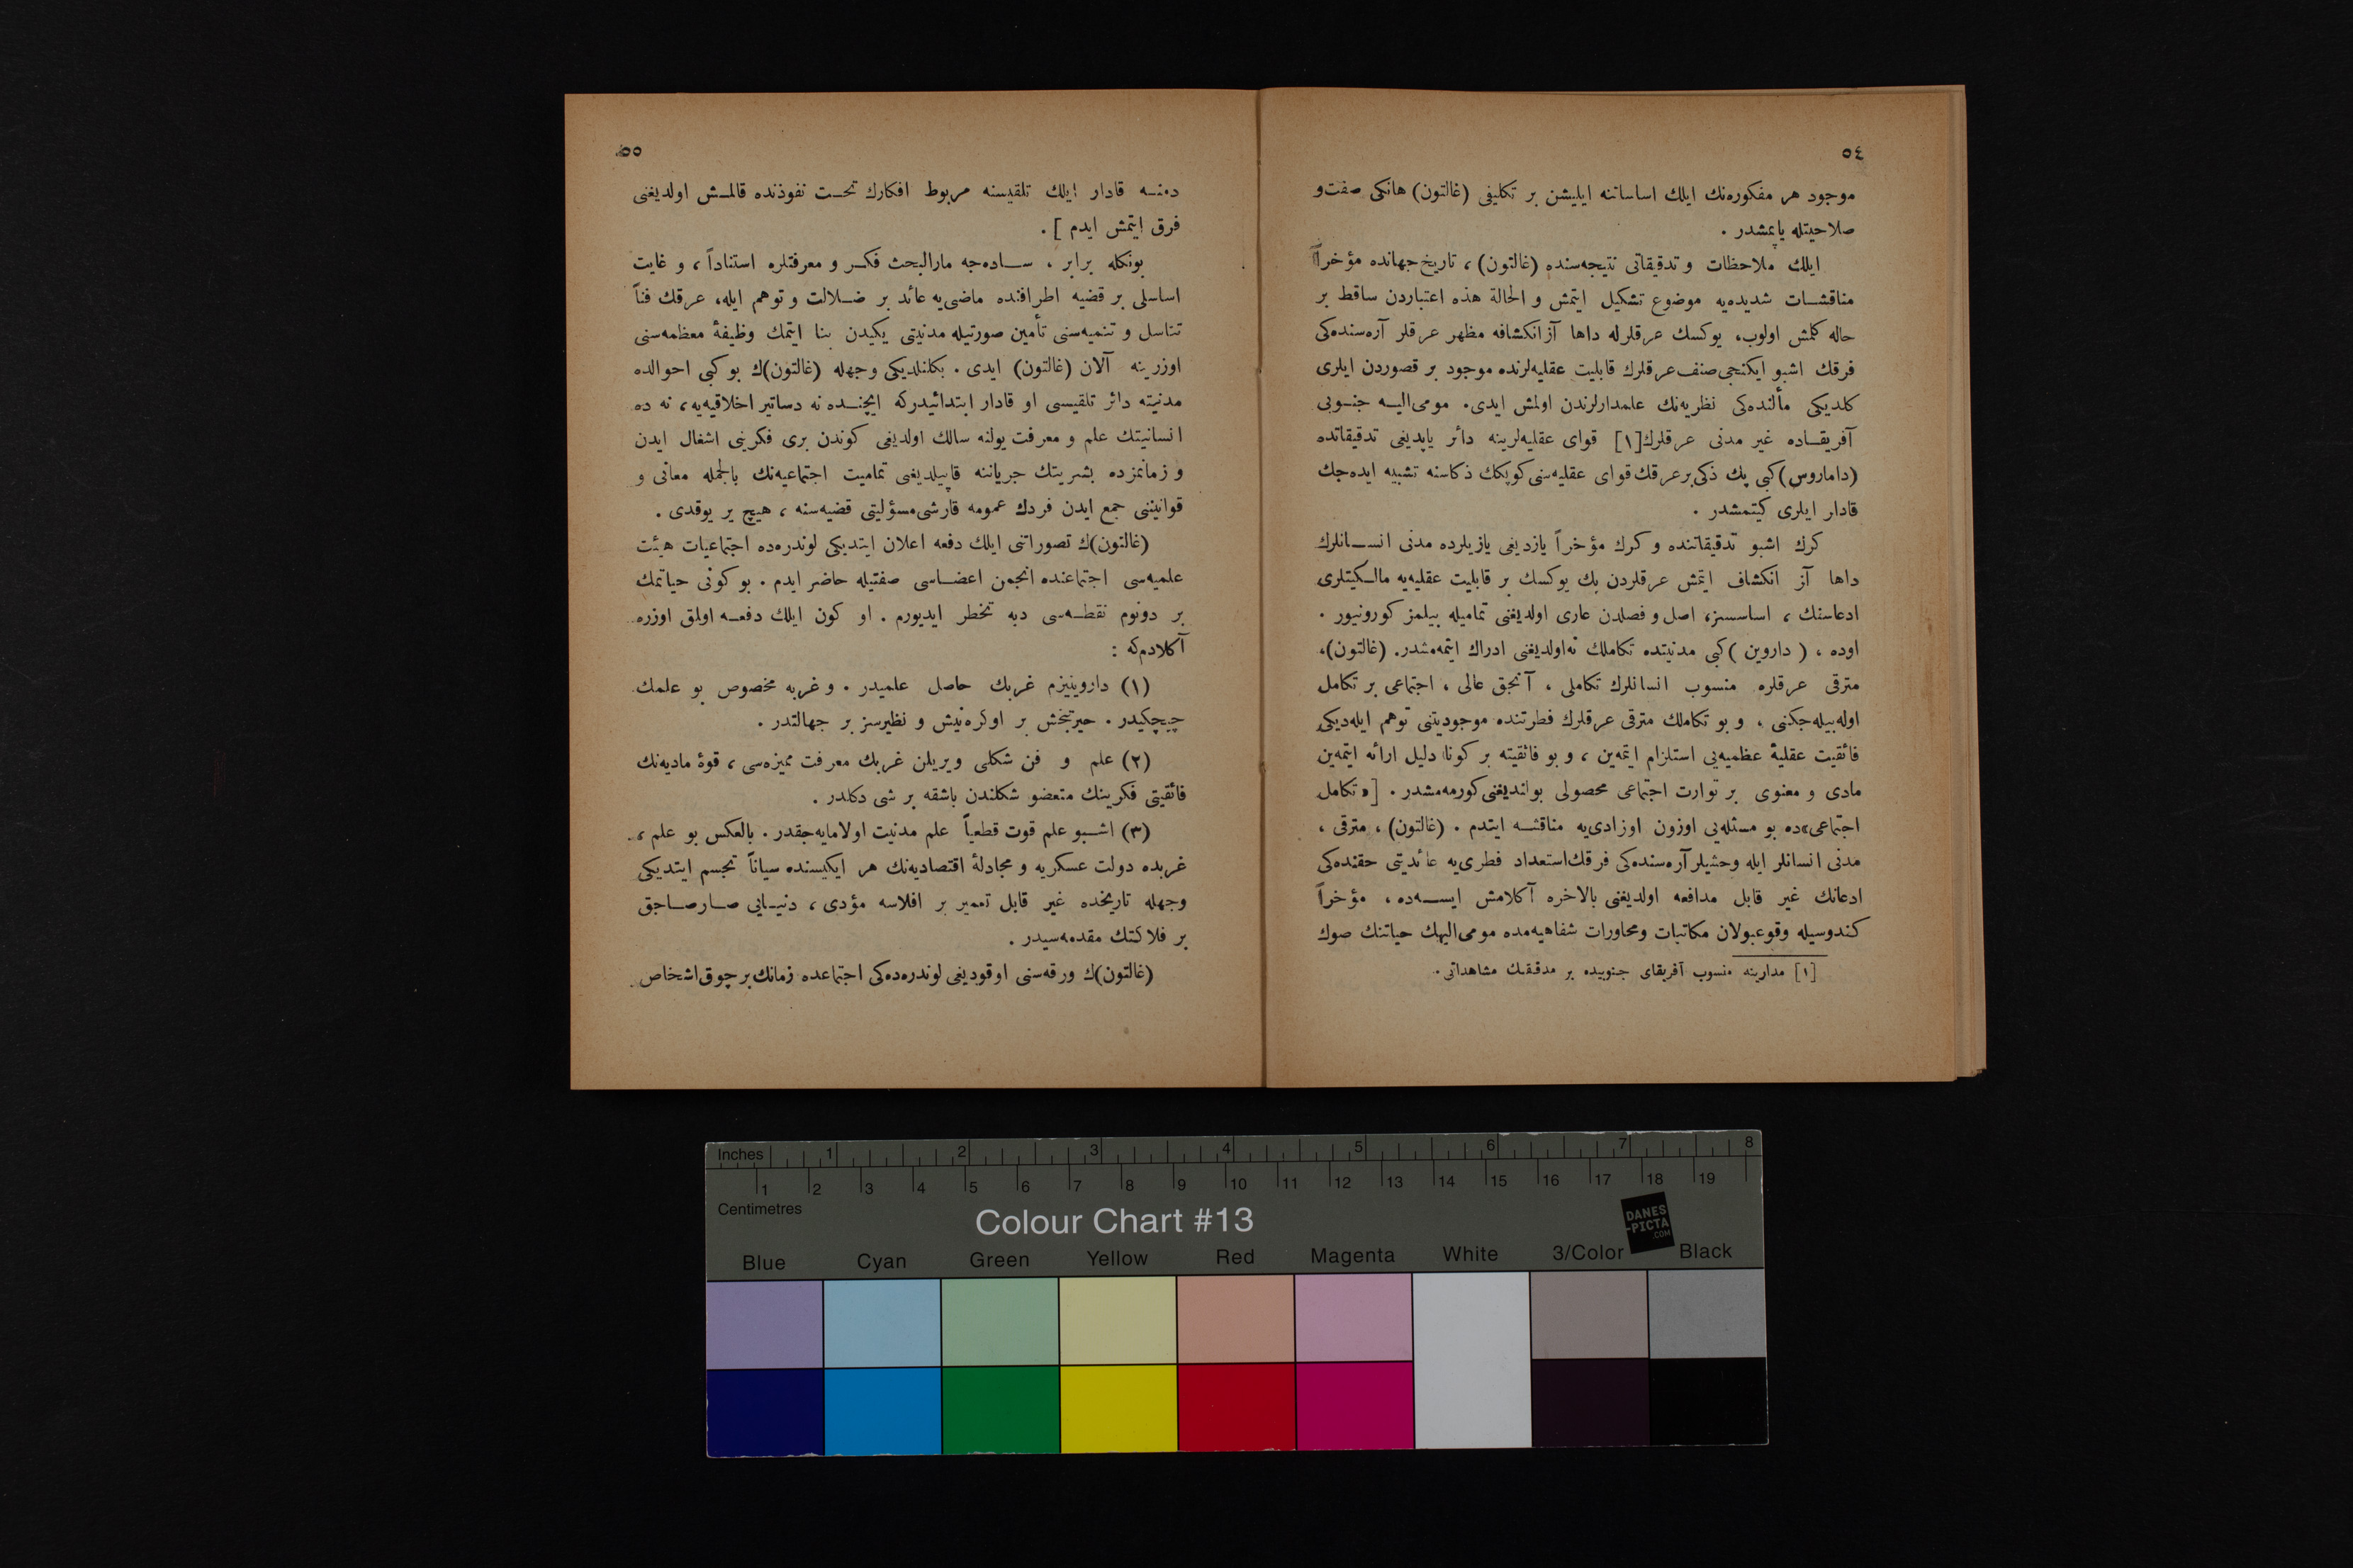 ٥٤
موجود هر مفكوره‌نك ايلك اساساتنه ايليشن بر تكليفى (غالتون) هانكى صفت و
صلاحيتله ياپمشدر .
ايلك ملاحظات و تدقيقاتى نتيجه‌سنده (غالتون) ، تاريخ جهانده مؤخراً
مناقشــات شديده‌يه موضوع تشكيل ايتمش و الحالة هذه اعتباردن ساقط بر
حاله كلمش اولوب، يوكسك عرقلرله داها آز انكشافه مظهر عرقلر آره‌سنده‌كى
فرقك اشبو ايكنجى صنف عرقلرك قابليت عقليه‌لرنده موجود بر قصوردن ايلرى
كلديكى مألنده‌كى نظريه‌نك علمدارلرندن اولمش ايدى. مومى اليــه جنــوبى
آفريقــاده غير مدنى عرقلرك[١] قواى عقليه‌لرينه دائر ياپديغى تدقيقاتده
(داماروس) كبى پك ذكى بر عرقك قواى عقليه‌سنى كوپكك ذكاسنه تشبيه ايده‌جك
قادار ايلرى كيتمشدر .
كرك اشبو تدقيقاتنده و كرك مؤخراً يازديغى يازيلرده مدنى انســانلرك
داها آز انكشاف ايتمش عرقلردن پك يوكسك بر قابليت عقليه‌يه مالــكيتلرى
ادعاسنك ، اساسسز، اصل و فصلدن عارى اولديغنى تماميله بيلمز كورونيور .
اوده ، ( داروين ) كبى مدنيتده تكاملك نه اولديغنى ادراك ايتمه‌مشدر. (غالتون)،
مترقى عرقلره منسوب انسانلرك تكاملى ، آنجق عالى ، اجتماعى بر تكامل
اوله‌بيله‌جكنى ، و بو تكاملك مترقى عرقلرك فطرتنده موجوديتنى توهم ايله‌ديكى
فائقيت عقليۀ عظميه‌يى استلزام ايتمه‌ين ، و بو فائقيته بر كونا دليل ارائه ايتمه‌ين
مادى و معنوى بر توارت اجتماعى محصولى بولنديغنى كورمه‌مشدر . [«تكامل
اجتماعى»ده بو مسئله‌يى اوزون اوزادى‌يه مناقشــه ايتدم . (غالتون) ، مترقى ،
مدنى انسانلر ايله وحشيلر آره‌سنده‌كى فرقك استعداد فطرى‌يه عائديتى حقنده‌كى
ادعانك غير قابل مدافعه اولديغنى بالاخره آكلامش ايســه‌ده ، مؤخراً
كندوسيله وقوعبولان مكاتبات و محاورات شفاهيه‌مده مومى اليهك حياتنك صوك
[١] مدارينه منسوب آفريقاى جنوبيده بر مدققك مشاهداتى.
٥٥
دمنــه قادار ايلك تلقيسنه مربوط افكارك تحــت نفوذنده قالمــش اولديغنى
فرق ايتمش ايدم ] .
بونكله برابر ، ســاده‌جه مارالبحث فكــر و معرفتلره استناداً ، و غايت
اساسلى بر قضيه اطرافنده ماضى‌يه عائد بر ضــلالت و توهم ايله، عرقك فناً
تناسل و تنميه‌سنى تأمين صورتيله مدنيتى يكيدن بنا ايتمك وظيفۀ معظمه‌سنى
اوزرينه آلان (غالتون) ايدى . بكلنلديكى وجهله (غالتون)ك بو كبى احوالده
مدنيته دائر تلقيسى او قادار ابتدائيدركه ايچنــده نه دساتير اخلاقيه‌يه، نه ده
انسانيتك علم و معرفت يولنه سالك اولديغى كوندن برى فكرينى اشغال ايدن
و زمانمزده بشريتك جرياننه قاپيلديغى تماميت اجتماعيه‌نك بالجمله معانى و
قوانيننى جمع ايدن فردك عمومه قارشى مسؤليتى قضيه‌سنه ، هيچ ير يوقدى .
(غالتون)ك تصوراتنى ايلك دفعه اعلان ايتديكى لوندره‌ده اجتماعيات هيئت
علميه‌سى اجتماعنده انجمن اعضــاسى صفتيله حاضر ايدم . بو كونى حياتمك
بر دونوم نقطــه‌سى ديه تخطر ايديورم . او كون ايلك دفعــه اولمق اوزره
آكلادم كه :
(١) داروينيزم غربك حاصل علميدر . و غربه مخصوص بو علمك
چيچكيدر . حيرتبخش بر اوكره‌نيش و نظيرسز بر جهالتدر .
(٢) علم و فن شكلى ويريلن غربك معرفت مميزه‌سى ، قوۀ ماديه‌نك
فائقيتى فكرينك متعضو شكلندن باشقه بر شى دكلدر .
(٣) اشــبو علم قوت قطعياً علم مدنيت اولامايه‌جقدر . بالعكس بو علم ،
غربده دولت عسكريه و مجادلۀ اقتصاديه‌نك هر ايكيسنده سياناً تجسم ايتديكى
وجهله تاريخده غير قابل تعمير بر افلاسه مؤدى ، دنيــايى صــارصــاجق
بر فلاكتك مقدمه‌سيدر .
(غالتون)ك ورقه‌سنى اوقوديغى لوندره‌ده‌كى اجتماعده زمانك بر چوق اشخاص
Inches 1 2 3 4 5 6 7 8
1 2 3 4 5 6 7 8 9 10 11 12 13 14 15 16 17 18 19
Centimetres
Colour Chart #13
DANES
-PICTA
.COM
Blue Cyan Green Yellow Red Magenta White 3/Color Black